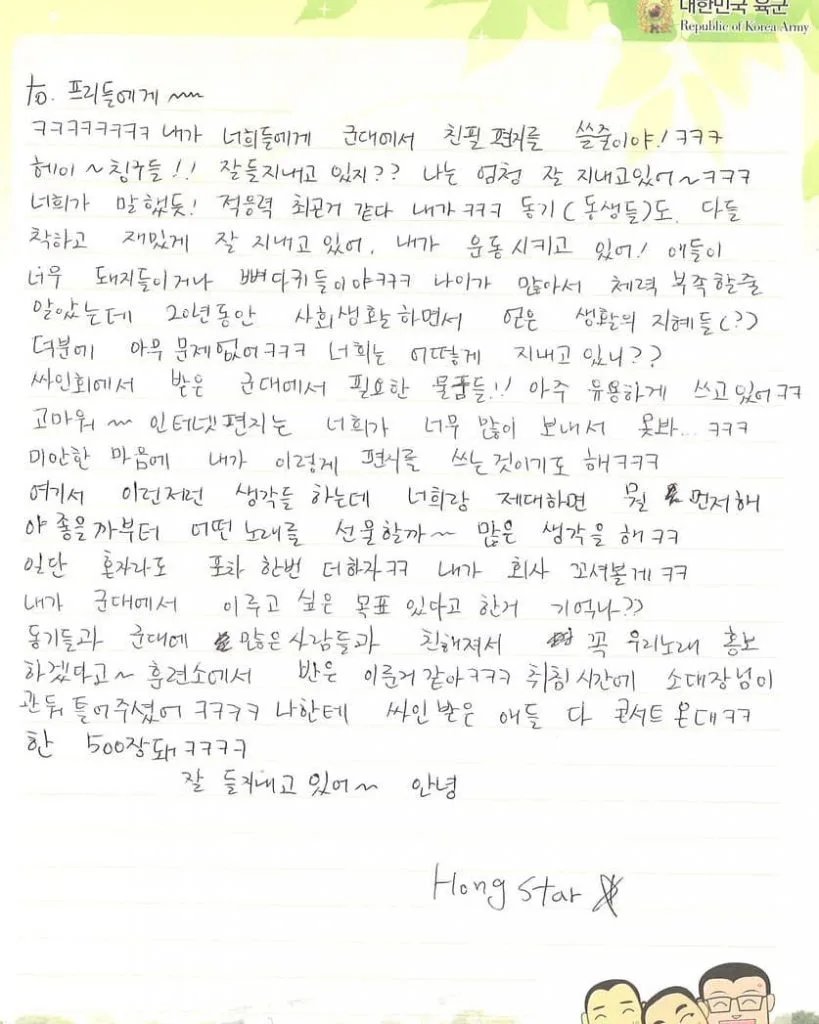 대한민국 육군
Republic of Korea Army
to. 프리들에게 ~~
ㅋㅋㅋㅋㅋㅋㅋㅋ 내가 너희들에게 군대에서 친필 편지를 쓸줄이야! ㅋㅋㅋ
헤이 ~ 칭구들!! 잘들지내고 있지?? 나는 엄청 잘 지내고있어~ㅋㅋㅋ
너희가 말했듯! 적응력 최곤거 같다 내가 ㅋㅋㅋ 동기(동생들)도 다들
착하고 재밌게 잘 지내고 있어. 내가 운동시키고 있어! 애들이
너무 돼지들이거나 뼈다귀들이야ㅋㅋㅋ 나이가 많아서 체력 부족할줄
알았는데 20년동안 사회생활하면서 얻은 생활의 지혜들(?)
덕분에 아무 문제없어ㅋㅋㅋ 너희는 어떻게 지내고 있니??
싸인회에서 받은 군대에서 필요한 물품들!! 아주 유용하게 쓰고있어ㅋㅋ
고마워~ 인터넷편지는 너희가 너무 많이 보내서 못봐... ㅋㅋㅋ
미안한 마음에 내가 이렇게 편지를 쓰는것이기도 해ㅋㅋㅋ
여기서 이런저런 생각들 하는데 너희랑 제대하면 뭘 먼저해
야 좋을까부터 어떤 노래를 선물할까~ 많은 생각을 해 ㅋㅋ
일단 혼자라도 포차 한번 더하자ㅋㅋ 내가 회사 꼬셔볼게 ㅋㅋ
내가 군대에서 이루고 싶은 목표 있다고 한거 기억나??
동기들과 군대에 많은 사람들과 친해져서 꼭 우리노래 홍보
하겠다고~ 훈련소에서 반은 이룬거 같아ㅋㅋㅋ 취침시간에 소대장님이
관둬 틀어주셨어 ㅋㅋㅋㅋ 나한테 싸인받은 애들 다 콘서트온대ㅋㅋ
한 500장돼ㅋㅋㅋㅋ
잘 들지내고 있어~ 안녕
Hong Star